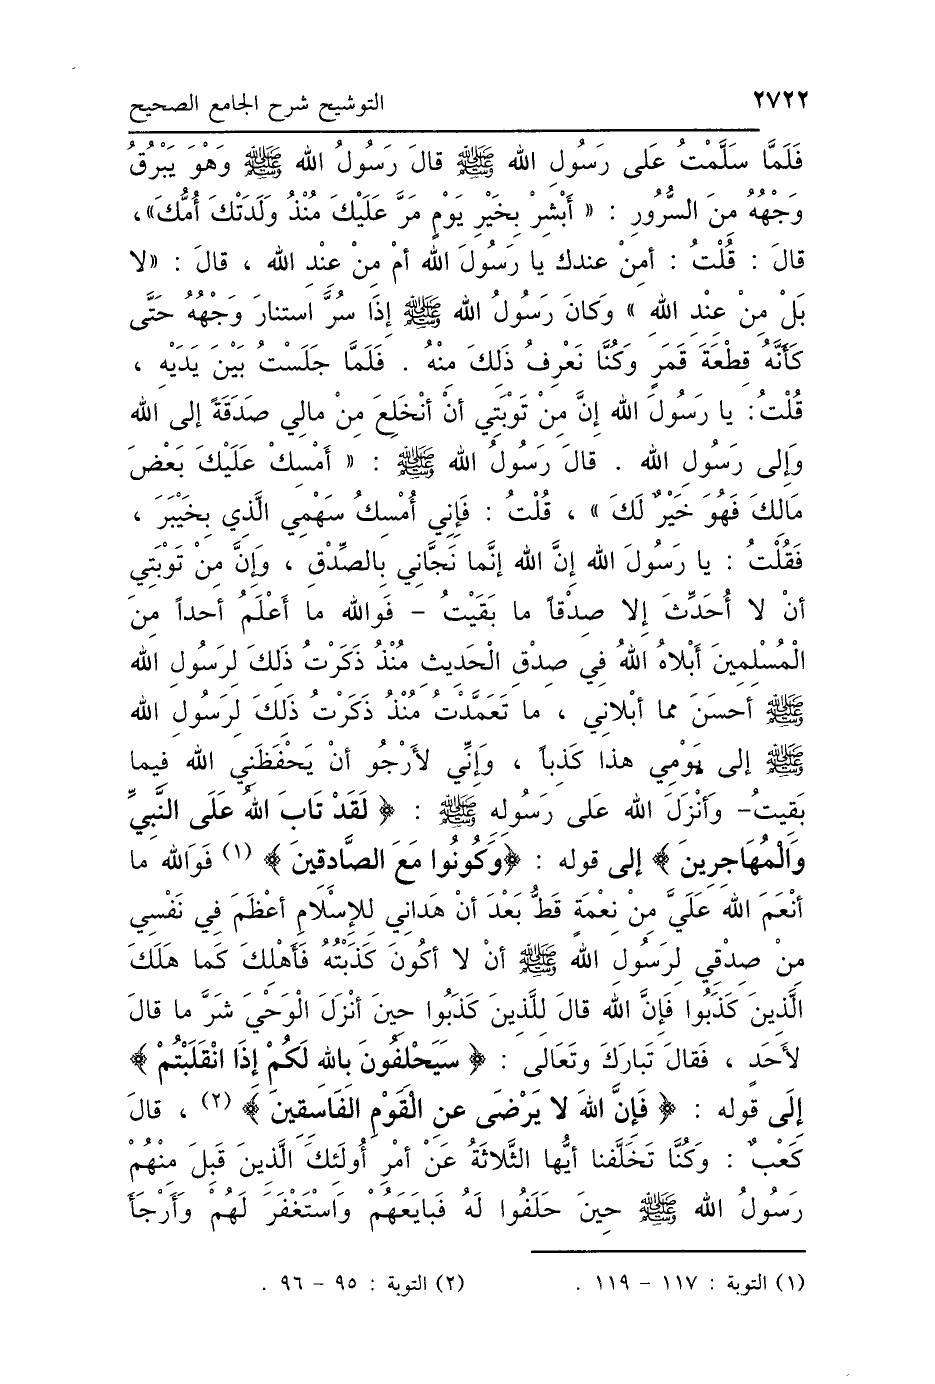 ٢٧٢٢ التوشيح شرح الجامع الصحيح
فَلَمَّا سَلَّمْتُ عَلى رَسُولِ الله ﷺ قالَ رَسُولُ الله ﷺ وَهْوَ يَبْرُقُ
وَجْهُهُ مِنَ السُّرُورِ : « أَبْشِرْ بِخَيْرِ يَوْمٍ مَرَّ عَلَيْكَ مُنْذُ وَلَدَتْكَ أُمُّكَ»،
قالَ : قُلْتُ : أمِنْ عندك يا رَسُولَ الله أمْ مِنْ عِنْدِ الله ، قالَ : «لا
بَلْ مِنْ عِنْدِ الله » وَكانَ رَسُولُ الله ﷺ إِذَا سُرَّ استنارَ وَجْهُهُ حَتَّى
كَأَنَّهُ قِطْعَةَ قَمَرٍ وَكُنَّا نَعْرِفُ ذَلكَ مِنْهُ . فَلَمَّا جَلَسْتُ بَيْنَ يَدَيْهِ ،
قُلْتُ: يا رَسُولَ الله إِنَّ مِنْ تَوْبَتي أنْ أنْخَلِعَ مِنْ مالي صَدَقَةً إلى الله
وَإلى رَسُولِ الله . قالَ رَسُولُ الله ﷺ : « أَمْسِكْ عَلَيْكَ بَعْضَ
مَالِكَ فَهُوَ خَيْرٌ لَكَ » ، قُلْتُ : فَإِني أُمْسِكُ سَهْمِي الَّذي بِخَيْبَرَ ،
فَقُلْتُ : يا رَسُولَ الله إنَّ الله إنَّما نَجَّاني بالصِّدْقِ ، وَإنَّ مِنْ تَوْبَتي
أنْ لا أُحَدِّثَ إلا صِدْقاً ما بَقَيْتُ – فَوالله ما أَعْلَمُ أحداً مِنَ
الْمُسْلِمِينَ أَبْلاهُ اللهُ في صِدْقِ الْحَدِيثِ مُنْذُ ذَكَرْتُ ذَلِكَ لِرَسُولِ الله
ﷺ أحسَنَ مما أبْلاني ، ما تَعَمَّدْتُ مُنْذُ ذَكَرتُ ذَلِكَ لِرَسُولِ الله
ﷺ إلى يَوْمِي هذا كَذِباً ، وَإنِّي لأَرْجُو أنْ يَحْفَظَنِي الله فيما
بَقِيتُ– وَأنْزَلَ الله عَلى رَسُولِهِ ﷺ : ﴿ لَقَدْ تَابَ اللهُ عَلَى النَّبِيِّ
وَالْمُهَاجِرِينَ ﴾ إلى قوله : ﴿وَكُونُوا مَعَ الصَّادِقِينَ ﴾ (١) فَوَالله ما
أنْعَمَ الله عَلَيَّ مِنْ نِعْمَةٍ قَطُّ بَعْدَ أنْ هَداني لِلإسْلامِ أعْظَمَ في نَفْسِي
مِنْ صِدْقِي لِرَسُولِ الله ﷺ أنْ لا أكُونَ كَذَبْتُهُ فَأَهْلِكَ كَما هَلَكَ
الَّذِينَ كَذَبُوا فَإنَّ الله قالَ لِلَّذِينَ كَذَبُوا حِينَ أنْزَلَ الْوَحْيَ شَرَّ ما قالَ
لأَحَدٍ ، فَقالَ تَبارَكَ وتَعَالى : ﴿ سَيَحْلِفُونَ بِالله لَكُمْ إذَا انْقَلَبْتُمْ ﴾
إلَى قوله : ﴿ فَإنَّ اللهَ لا يَرْضَى عنِ الْقَوْمِ الفَاسقِينَ ﴾ (٢) ، قالَ
كَعْبٌ : وَكُنَّا تَخَلَّفنا أيُّها الثَّلاثَةُ عَنْ أمْرِ أُولَئِكَ الَّذِينَ قَبِلَ مِنْهُم
رَسُولُ الله ﷺ حِينَ حَلَفُوا لَهُ فَبايَعَهُمْ وَاسْتَغْفَرَ لَهُمْ وَأَرْجَأَ
(١) التوبة : ١١٧ – ١١٩ . (٢) التوبة : ٩٥ – ٩٦ .